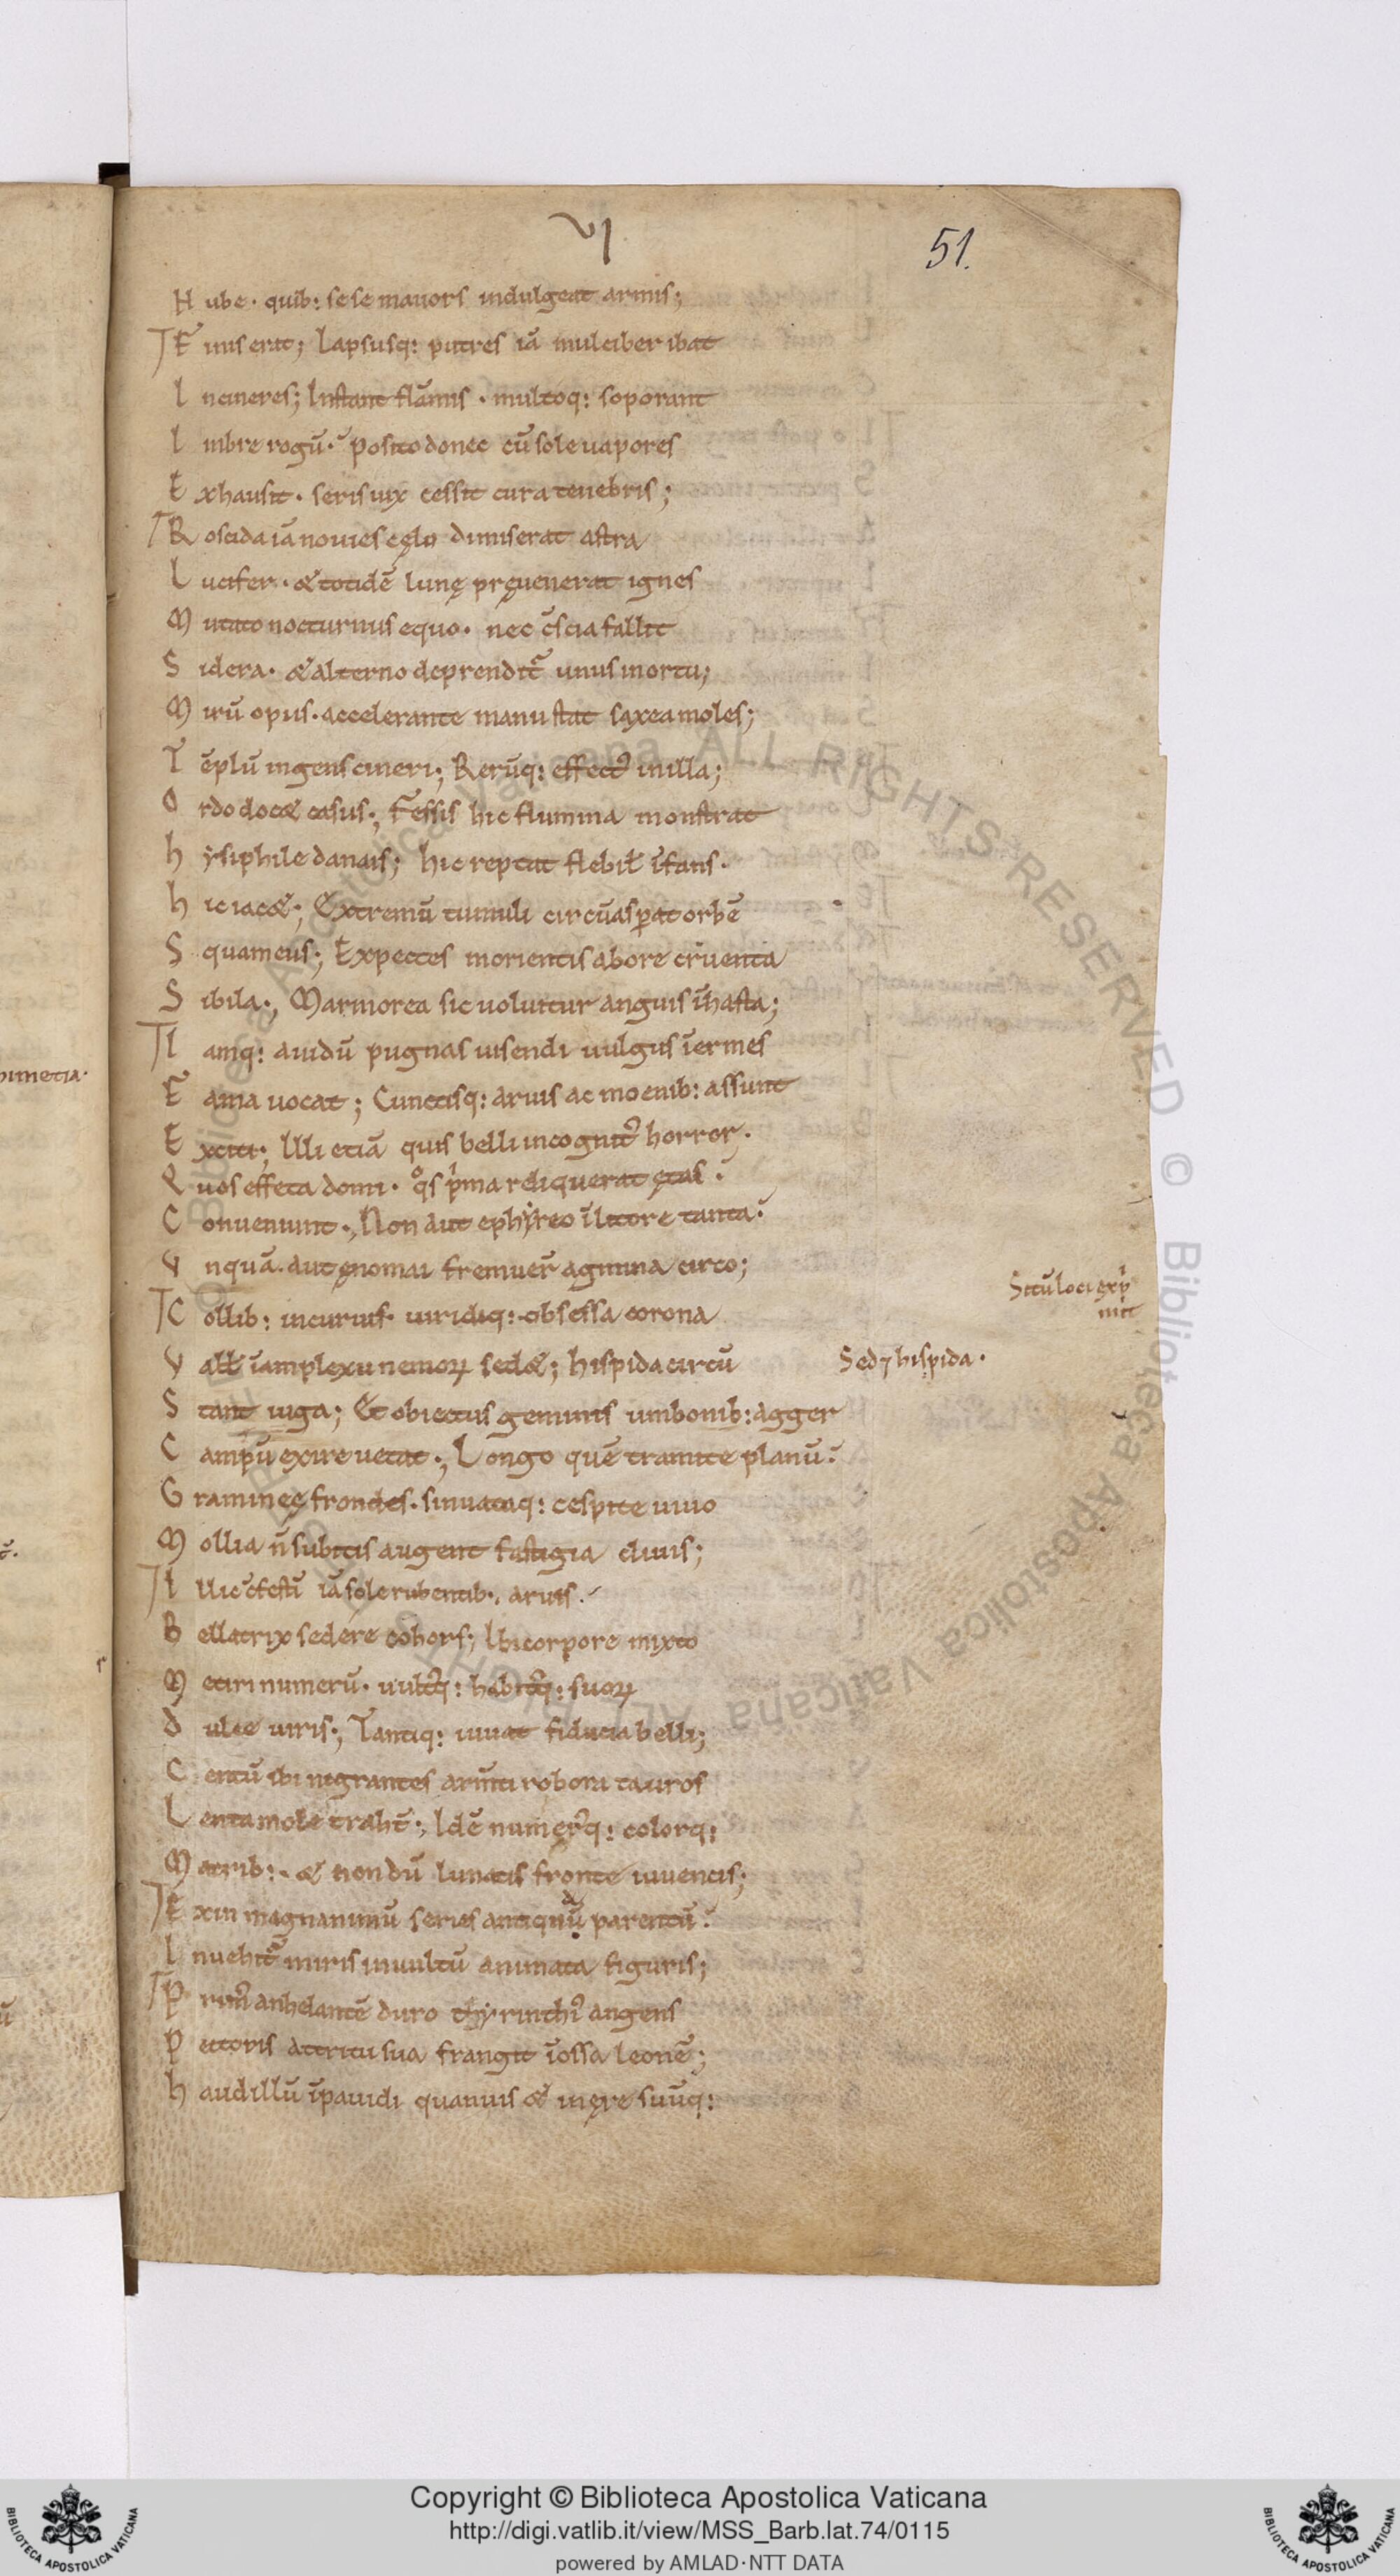 VI
51.
N ube · quib: sese mauors indulgeat armis;
F inis erat; Lapsusq: putres iā mulciber ibat
I ncineres; Instant flāmis · multoq: soporant
I mbre rogū · posito donec cū sole uapores
E xhausit · seris uix cessit cura tenebris;
R oscida iā nouies cęlo dimiserat astra
L ucifer · & totidē lunę pręuenerat ignes
M utato nocturnus equo · nec c̄scia fallit
S idera · & alterno deprendit᷑ unus inortu;
M irū opus · accelerante manu stat saxea moles;
T ēplū ingens cineri; Rerūq: effect᾿ inilla;
O rdo doc& casus; Fessis hic flumina monstrat
h ẏsiphile danais; hic reptat flebil̄ īfans ·
h ic iac&; Extremū tumuli circū asꝑat orbē
S quameus; Expectes morientis abore cruenta
S ibila; Marmorea sic uoluitur anguis īhasta;
I amq: auidū pugnas uisendi uulgus īermes
F ama uocat; Cunctisq: aruis ac moenib: assunt
E xciti; Illi etiā quis belli incognit᾿ horror ·
Q uos effeta domi · qͦs pͥma reliquerat ętas ·
C onueniunt; Non aut ephẏreo īlitore tanta ·
V nquā · aut ęnomai fremuer̄ agmina circo;
C ollib: incuruis · uiridiq: obsessa corona
V all̄ īamplexu nemoꝝ sed&; hispida circū
S tant iuga; Et obiectus geminis umbonib: agger
C ampū exire uetat; Longo quē tramite planū
G ramineę frondes · sinuataq: cespite uiuo
M ollia n̄ subitis augent fastigia cliuis;
I llic c̄festī iā sole rubentib: aruis ·
B ellatrix sedere cohors; Ibi corpore mixto
M etiri numerū · uult᾿q: habit᾿q: suoꝝ
D ulce uiris; Tantiq: iuuat fiducia belli;
C entū ibi nigrantes armti robora tauros
L enta mole traht̄; Idē numer᾿q: colorq:
M atrib: · & nondū lunatis fronte iuuencis;
E xin magnanimū series antiqūū parentū ·
I nuehit᷑ miris inuultū animata figuris;
P rim᾿ anhelantē duro thẏrinthi᾿ angens
P ectoris attritu sua frangit īossa leonē;
h aud illū īpauidi quanuis & inęre suūq:
Sitū loci exp̄
mit
Sed⁊ hispida ·
Copyright © Biblioteca Apostolica Vaticana
http://digi.vatlib.it/view/MSS_Barb.lat.74/0115
powered by AMLAD·NTT DATA